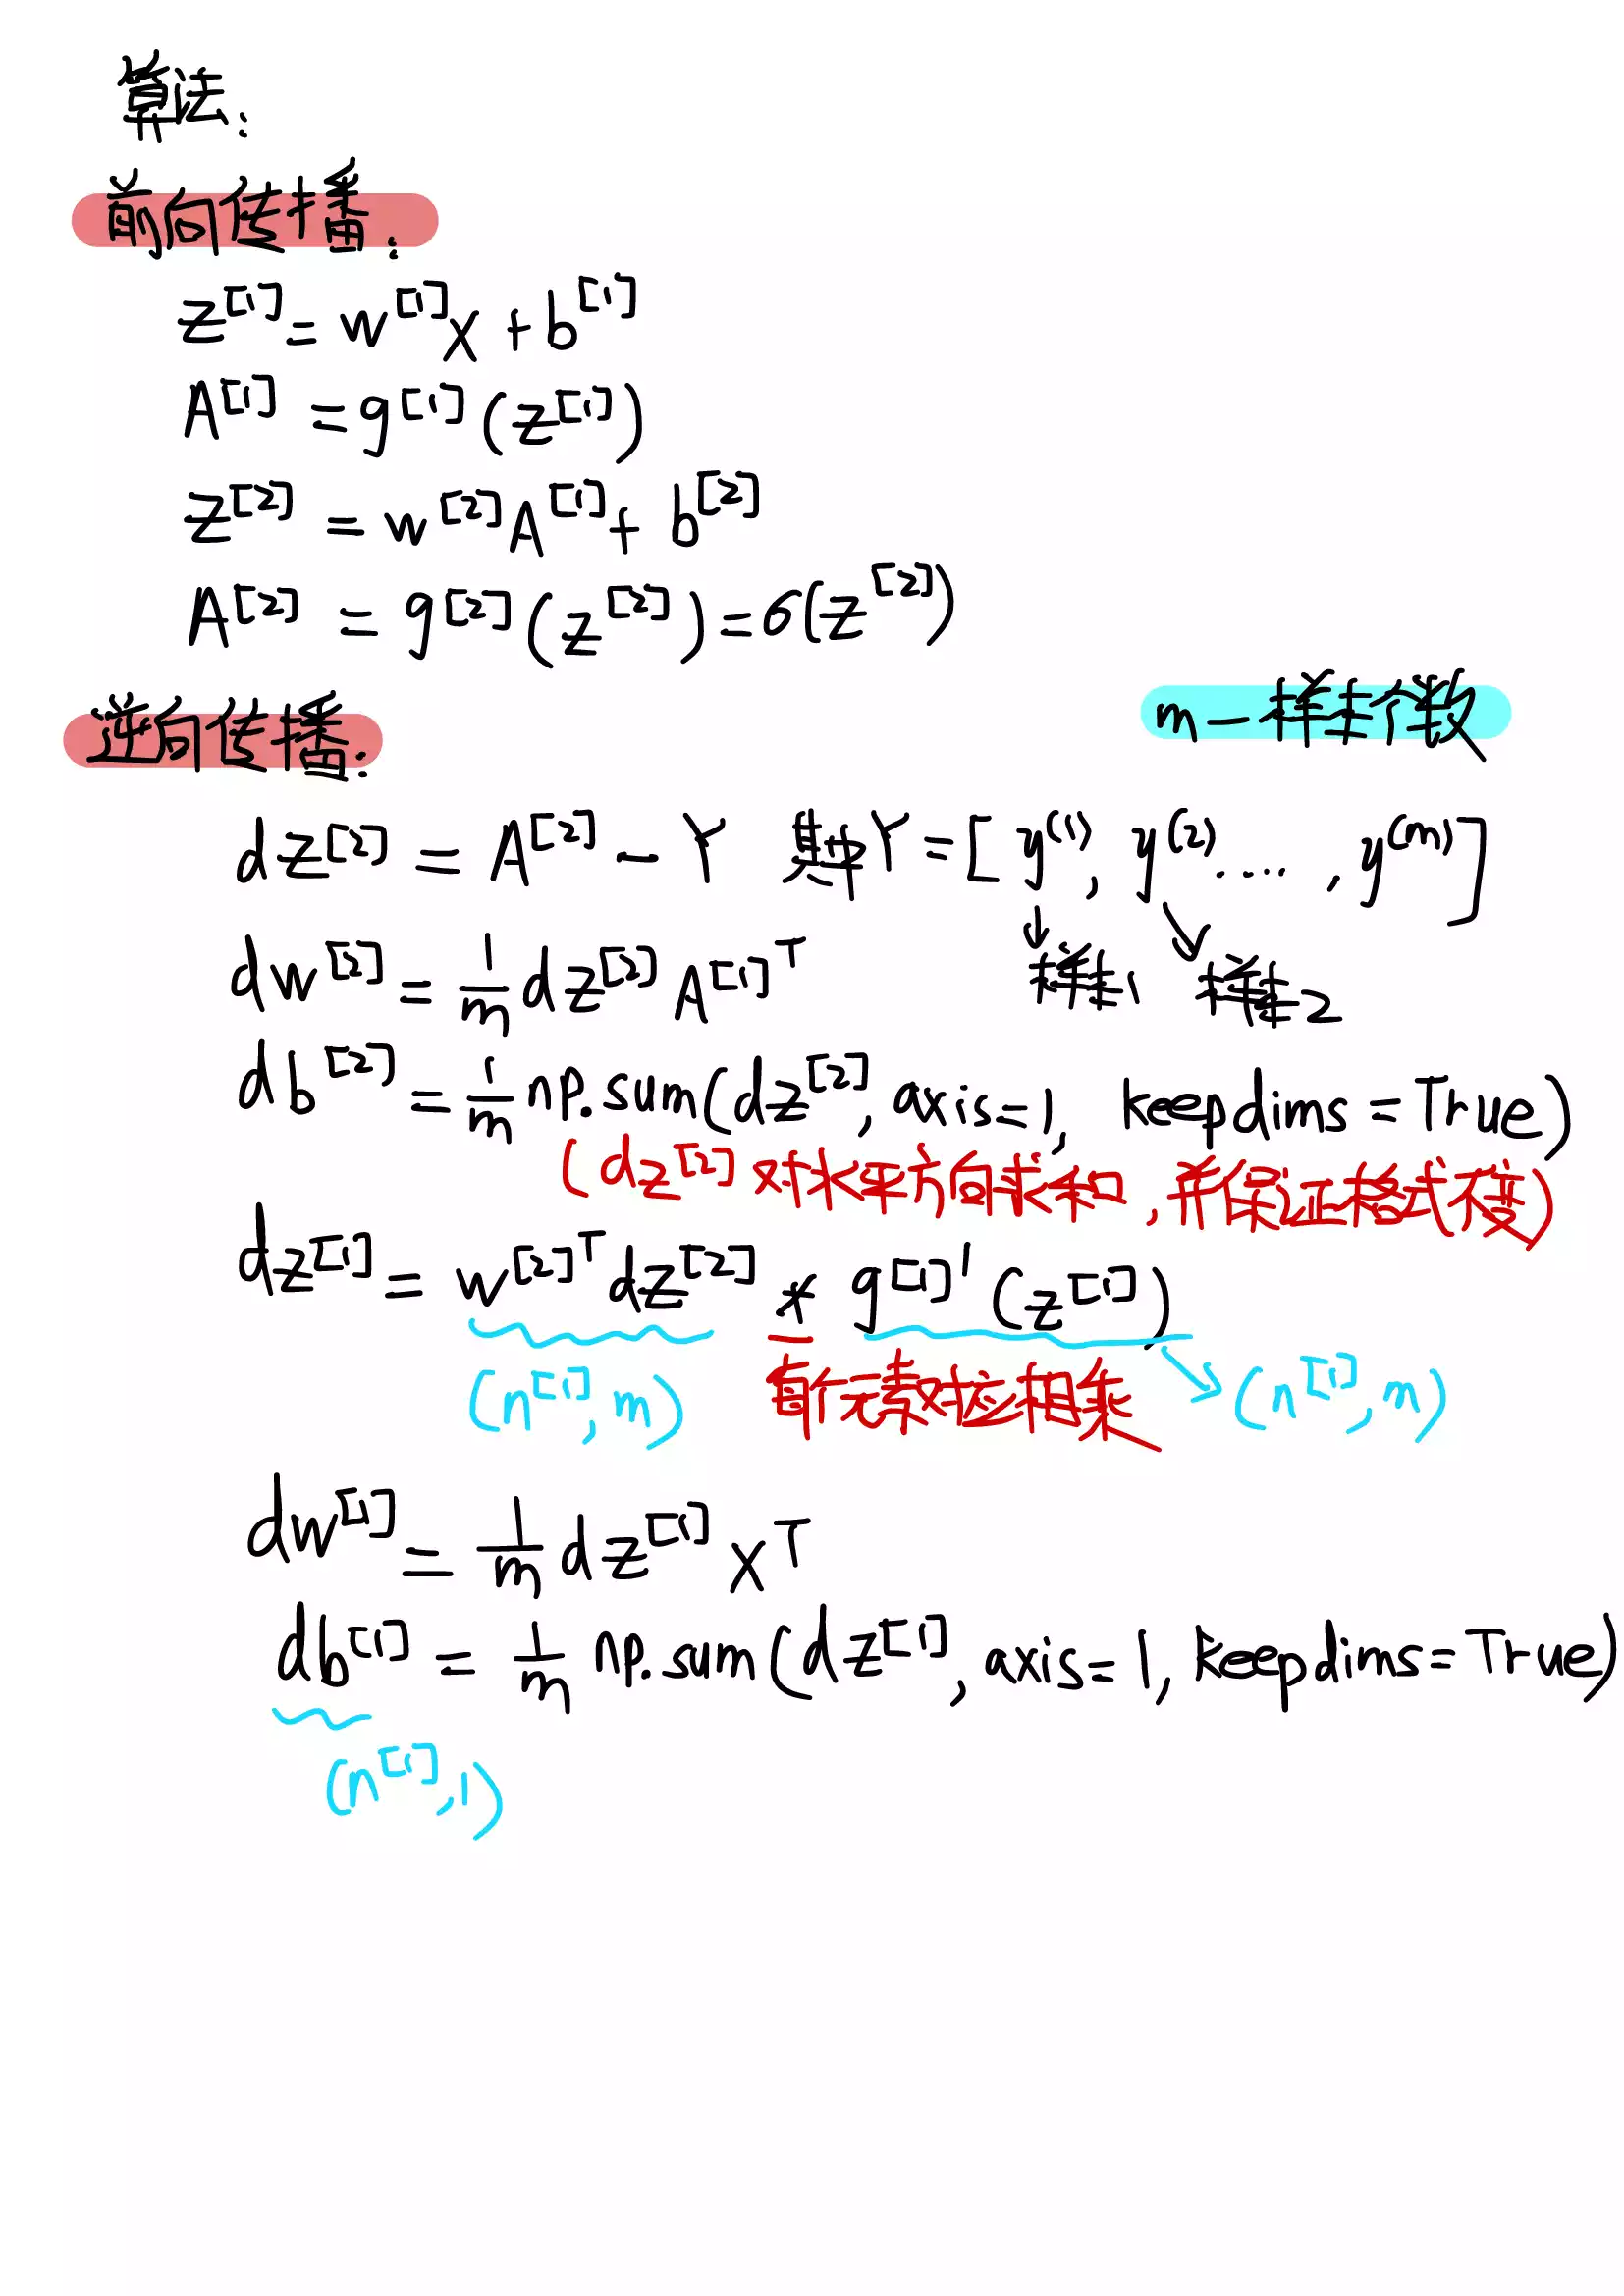 算法：
前向传播：
z^[1] = w^[1]x + b^[1]
A^[1] = g^[1](z^[1])
z^[2] = w^[2]A^[1] + b^[2]
A^[2] = g^[2](z^[2]) = σ(z^[2])
m—样本个数
逆向传播：
dz^[2] = A^[2] - Y 其中Y = [y^(1), y^(2) ...., y^(m)]
样本1 样本2
dw^[2] = 1/m dz^[2] A^[1]T
db^[2] = 1/m np.sum(dz^[2], axis=1, keepdims=True)
(dz^[2] 对水平方向求和，并保证格式不变)
dz^[1] = w^[2]T dz^[2] * g^[1]'(z^[1])
(n^[1], m) 每个元素对应相乘 (n^[1], m)
dw^[1] = 1/m dz^[1] x^T
db^[1] = 1/m np.sum(dz^[1], axis=1, keepdims=True)
(n^[1], 1)